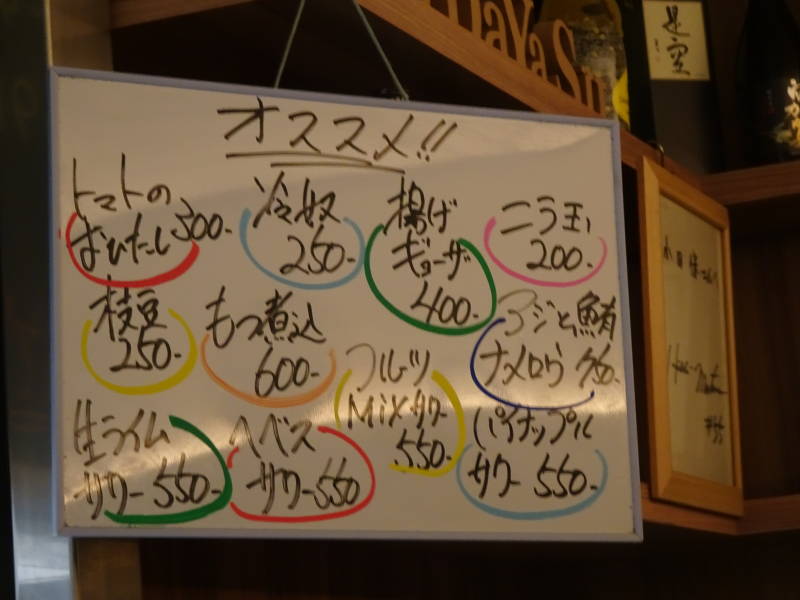 オススメ!!
トマトの
おひたし 300-
冷奴
250-
揚げ
ギョーザ
400-
ニラ玉
200-
枝豆
250-
もつ煮込
600-
フルーツ
MIXサワー
550-
アジと鮪
ナメロウ 750-
生ライム
サワー 550-
ヘベス
サワー 550
パイナップル
サワー 550-